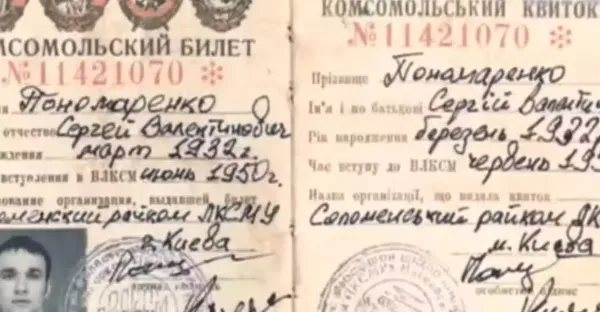 КОМСОМОЛЬСКИЙ БИЛЕТ
№ 11421070 *
Пономаренко
отчество Сергей Валентинович
март 1932 г.
вступления в ВЛКСМ июнь 1950 г.
организации, выдавшей билет
райком ЛКСМУ
г. Киева
КОМСОМОЛЬСЬКИЙ КВИТОК
№ 11421070 *
Прізвище Пономаренко
Ім'я і по батькові Сергій
Рік народження березень 1932
Час вступу до ВЛКСМ червень
Назва організації, що видала квиток
Соломенський райком
м. Києва
особистий підпис